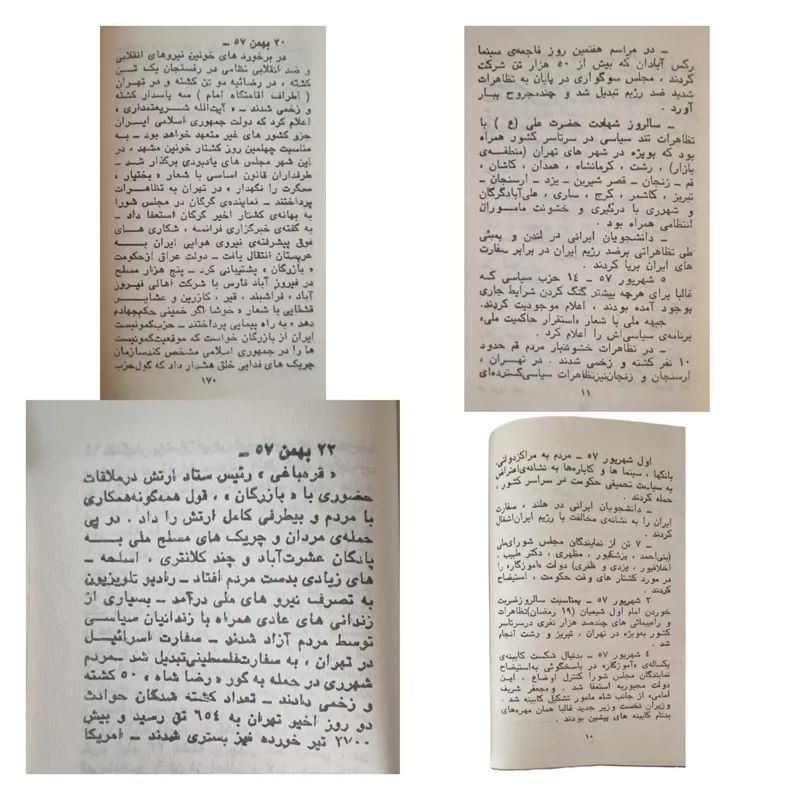 ۲۰ بهمن ۵۷ ــ
در برخورد های خونین نیروهای انقلابی
و ضد انقلابی نظامی در رفسنجان یک تــن
کشته ، در رضائیه دو تن کشته و در تهران
( اطراف اقامتگاه امام ) سه پاسدار کشته
و زخمی شدند ــ « آیت‌الله شریعتمداری ،
اعلام کرد که دولت جمهوری اسلامی ایـران
جزو کشور های غیر متعهد خواهد بود ــ به
مناسبت چهلمین روز کشتار خونین مشهد ، در
این شهر مجلس های یادبودی برگذار شد ــ
طرفداران قانون اساسی با شعار « بختیار ،
سنگرت را نگهدار » در تهران به تظاهــرات
پرداختند ــ نماینده‌ی گرگان در مجلس شورا
به بهانه‌ی کشتار اخیر گرگان استعفا داد ــ
به گفته‌ی خبرگزاری فرانسه ، شکاری هــای
فوق پیشرفته‌ی نیروی هوایی ایران بـــه
عربستان انتقال یافت ــ دولت عراق ازحکومت
« بازرگان » پشتیبانی کرد ــ پنج هزار مسلح
در فیروز آباد فارس با شرکت اهالی فیـروز
آباد ، فراشبند ، قیر ، کازرین و عشایــر
قشقایی با شعار « خوشا اگر خمینی حکم‌جهادم
دهد » به راه پیمایی پرداختند ــ حزب‌کمونیست
ایران از بازرگان خواست که موقعیت‌کمونیست
ها را در جمهوری اسلامی مشخص کند‌سازمان
چریک های فدایی خلق هشدار داد که گول‌حزب
۱۷۰
ــ در مراسم هفتمین روز فاجعه‌ی سینما
رکس آبادان که بیش از ۵۰ هزار تن شرکت
کردند ، مجلس سوگواری در پایان به تظاهرات
شدید ضد رژیم تبدیل شد و چندمجروح ببـار
آورد .
ــ سالروز شهادت حضرت علی ( ع ) با
تظاهرات تند سیاسی در سرتاسر کشور همراه
بود که بویژه در شهر های تهران (منطقه‌ی
بازار) ، رشت ، کرمانشاه ، همدان ، کاشان ،
قم ــ زنجان ــ قصر شیرین ــ یزد ــ ارسنجان ــ
تبریز ، کاشمر ، کرج ، ساری ، علی‌آبادگرگان
و شهرری با درگیری و خشونت مامــوران
انتظامی همراه بود .
ــ دانشجویان ایرانی در لندن و بمبئی
طی تظاهراتی برضد رژیم ایران در برابر سفارت
های ایران برپا کردند .
۵ شهریور ۵۷ ــ ۱۴ حزب سیاسی کــه
غالبا برای هرچه بیشتر گنگ کردن شرایط جاری
بوجود آمده بودند ، اعلام موجودیت کردند.
جبهه ملی با شعار «استقرار حاکمیت ملی»
برنامه‌ی سیاسی‌اش را اعلام کرد .
ــ در تظاهرات خشونتبار مردم قم حدود
۱۰ نفر کشته و زخمی شدند . در تهــران ،
ارسنجان و زنجان‌نیزتظاهرات سیاسی‌گسترده‌ای
۱۱
۲۲ بهمن ۵۷ ــ
« قره‌باغی » رئیس ستاد ارتش درملاقات
حضوری با « بازرگان » ، قول همه‌گونه‌همکاری
با مردم و بیطرفی کامل ارتش را داد . در پی
حمله‌ی مردان و چریک های مسلح ملی بــه
پادگان عشرت‌آباد و چند کلانتری ، اسلحه ــ
های زیادی بدست مردم افتاد ــ رادیو تلویزیون
به تصرف نیرو های ملی درآمد ــ بسیاری از
زندانی های عادی همراه با زندانیان سیاسـی
توسط مردم آزاد شدند ــ سفارت اسرائیــل
در تهران ، به سفارت‌فلسطینی‌تبدیل شد ــ‌مردم
شهرری در حمله به گور « رضا شاه » ۵۰ کشته
و زخمی دادند ــ تعداد کشته شدگان حوادث
دو روز اخیر تهران به ۶۵۴ تن رسید و بیش
۲۷۰۰ تیر خورده نیز بستری شدند ــ امریکا
اول شهریور ۵۷ ــ مردم به مراکزدولتی
بانکها ، سینما ها و کاباره‌ها به نشانه‌ی‌اعتراض
به سیاست تحمیقی حکومت در سراسر کشور ،
حمله کردند .
ــ دانشجویان ایرانی در هلند ، سفارت
ایران را به نشانه‌ی مخالفت با رژیم ایران‌اشغال
کردند .
ــ ۷ تن از نمایندگان مجلس شورای‌ملی
(بنی‌احمد ، پزشکپور ، مظهری ، دکتر طبیب ،
اخلاقپور ، یزدی و ظفری) دولت «آموزگار» را
در مورد کشتار های وقت حکومت ، استیضاح
کردند .
۲ شهریور ۵۷ ــ بمناسبت سالروزضربت
خوردن امام اول شیعیان (۱۹ رمضان)تظاهرات
و راه‌پیمائی های چندصد هزار نفری درسرتاسر
کشور به‌ویژه در تهران ، تبریز و رشت انجام
شد .
۴ شهریور ۵۷ ــ بدنبال شکست کابینه‌ی
یکساله‌ی «آموزگار» در پاسخگوئی به‌استیضاح
نمایندگان مجلس شورا کنترل اوضاع ، ایـن
دولت مجبوربه استعفا شد . و«جعفر شریف
امامی» از جانب شاه مامور تشکیل کابینه شد .
وزیران نخست وزیر جدید غالبا همان مهره‌های
بدنام کابینه های پیشین بودند .
۱۰